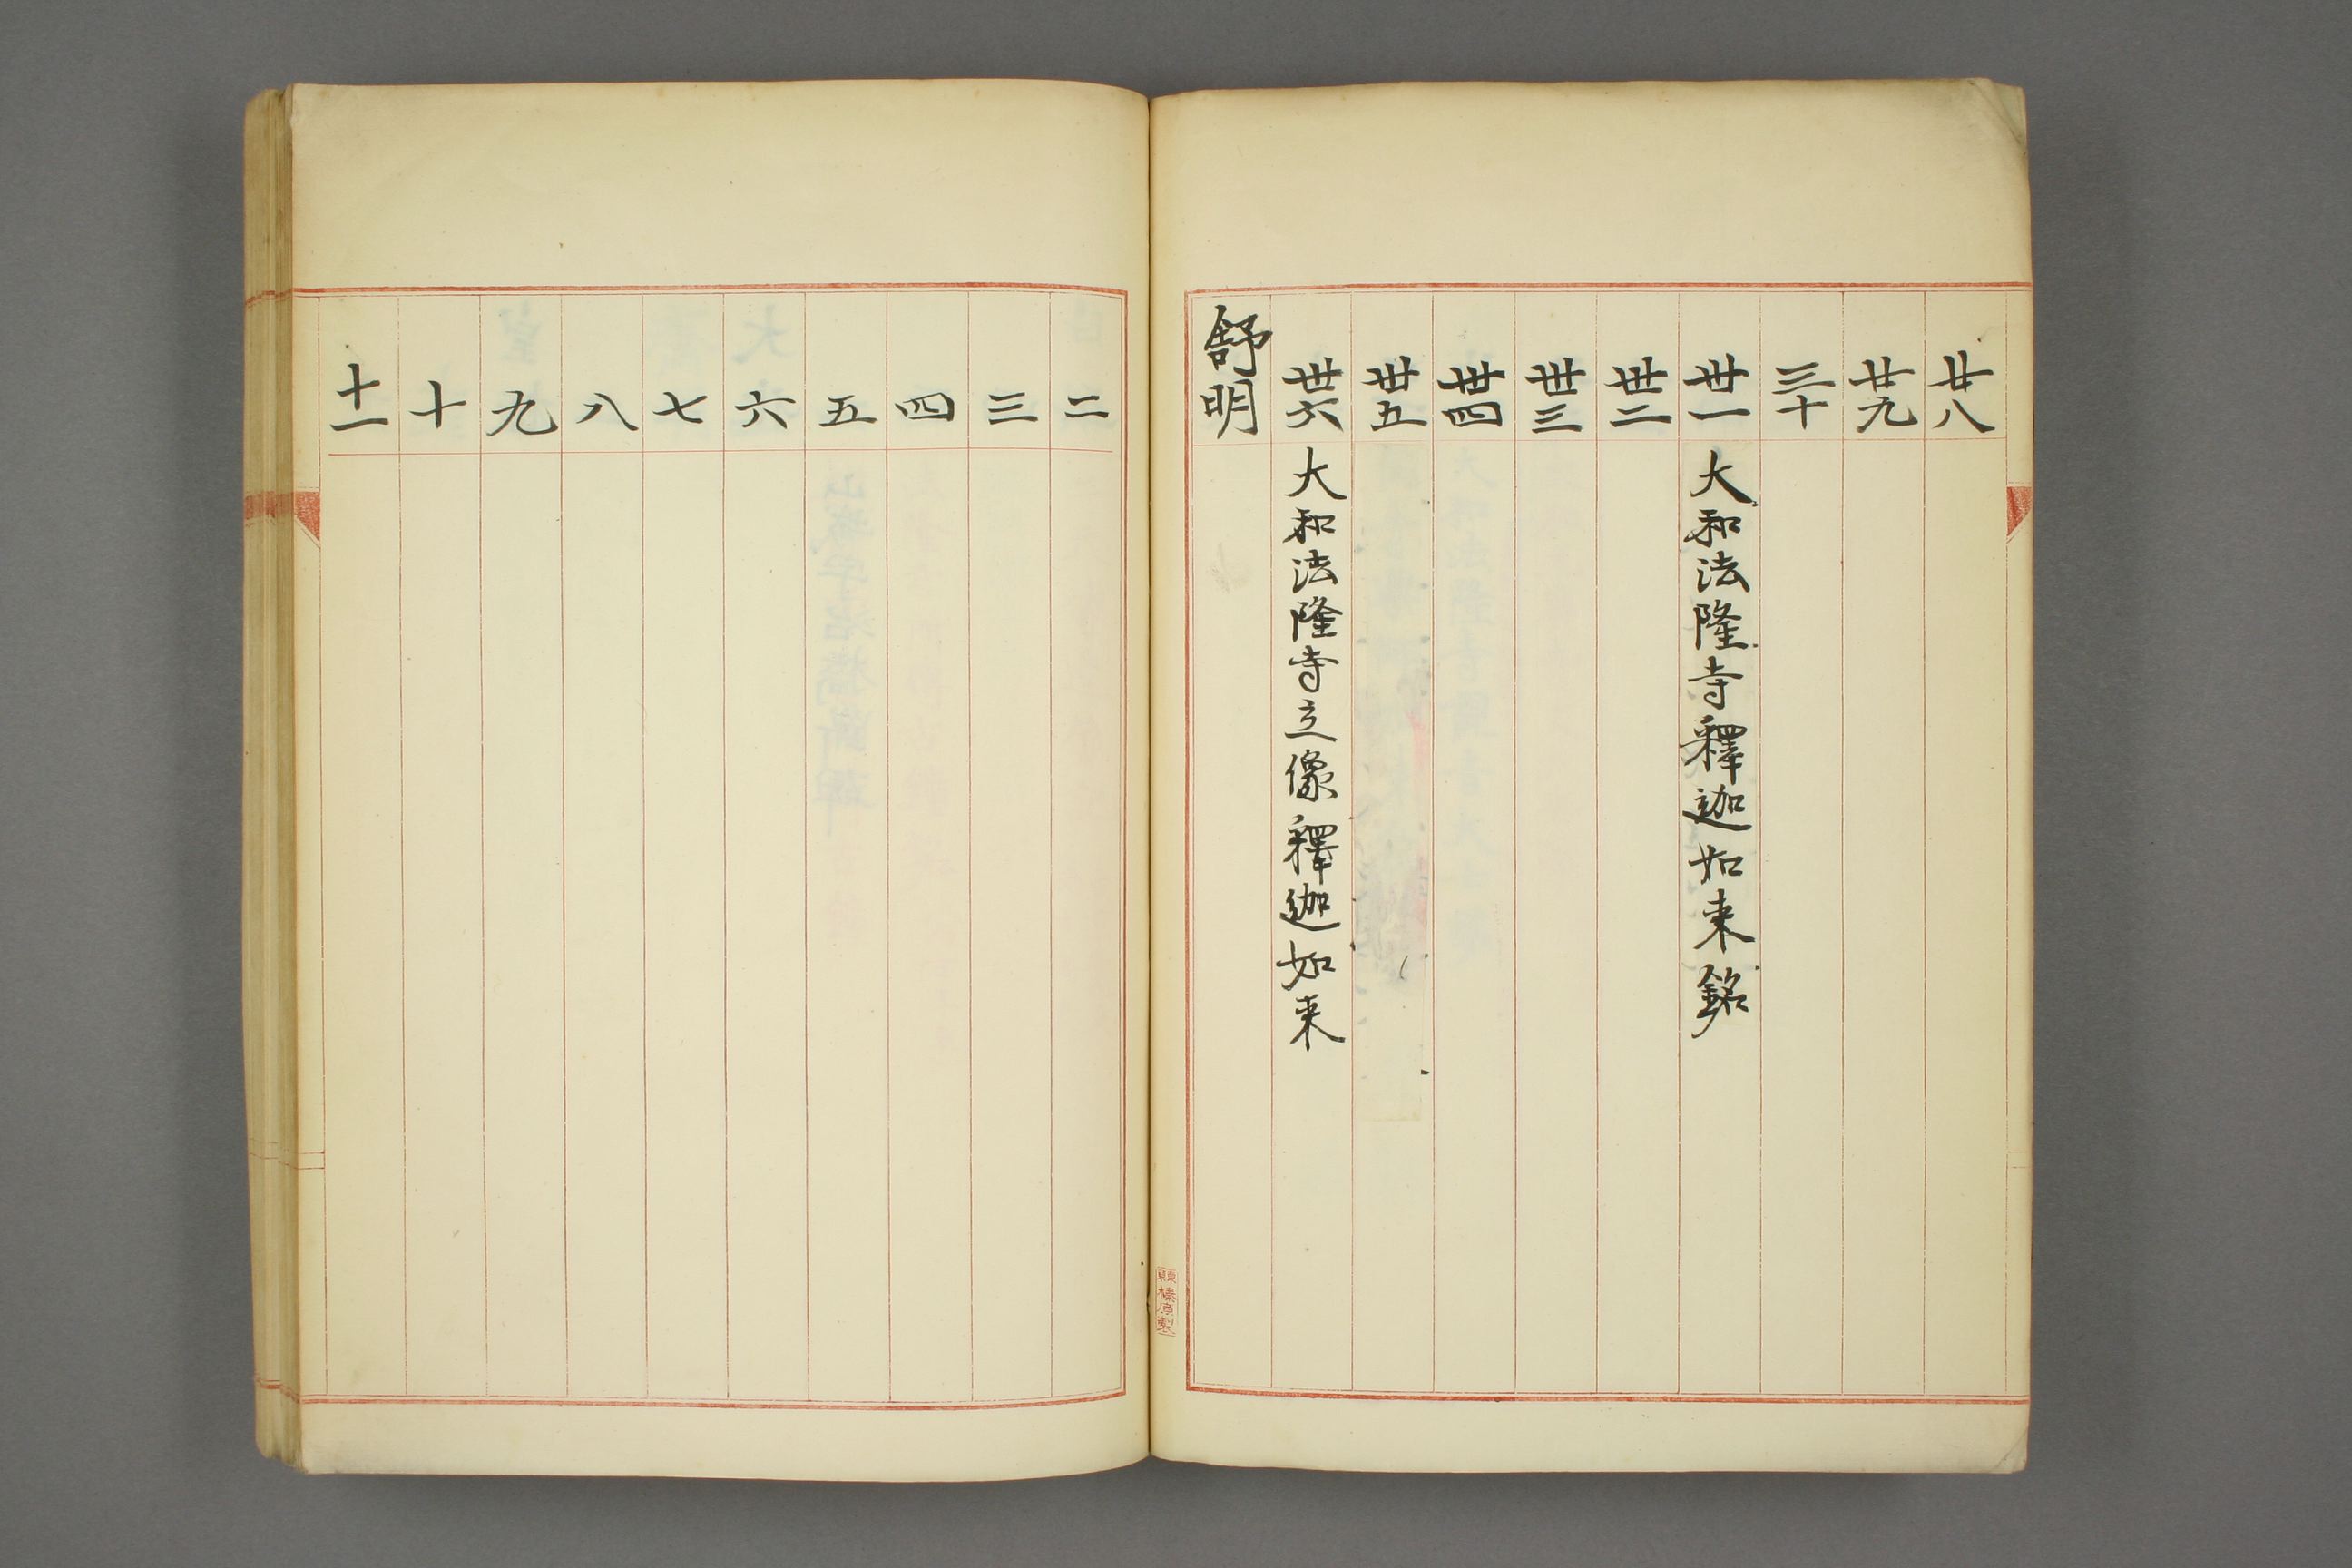 廿八
廿九
三十
丗一 大和法隆寺釋迦如来銘
丗二
丗三
丗四
丗五
丗六 大和法隆寺立像釋迦如来
舒明
東京
榛原製
二
三
四
五
六
七
八
九
十
十一